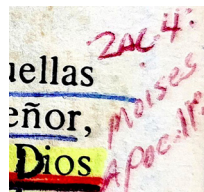 uellas
eñor,
Dios
ZAC 4:
moises
APOC. 11: